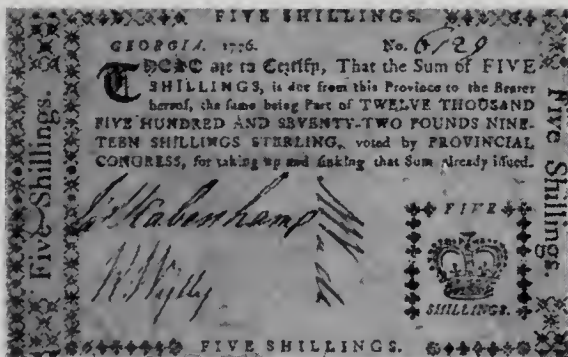 FIVE SHILLINGS.
GEORGIA. 1776. No. 6129
THESE are to Certify, That the Sum of FIVE
SHILLINGS, is due from this Province to the Bearer
hereof, the same being Part of TWELVE THOUSAND
FIVE HUNDRED AND SEVENTY-TWO POUNDS NINE-
TEEN SHILLINGS STERLING, voted by PROVINCIAL
CONGRESS, for taking up and sinking that Sum already issued.
Five Shillings.
Five Shillings.
Wylly
FIVE
SHILLINGS.
FIVE SHILLINGS.